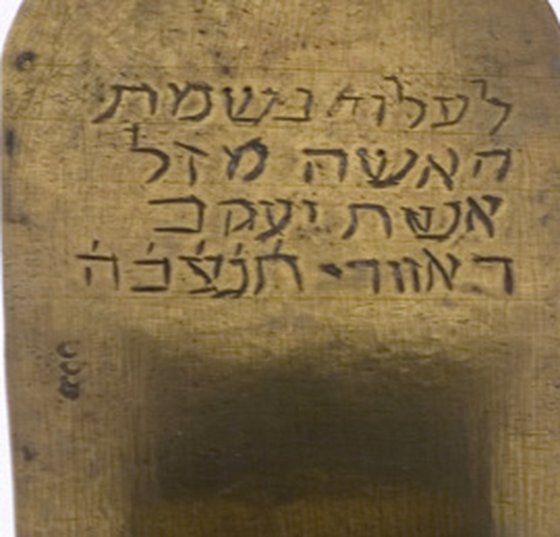 לעלוי נשמת
האשה מזל
אשת יעקב
תנצבה